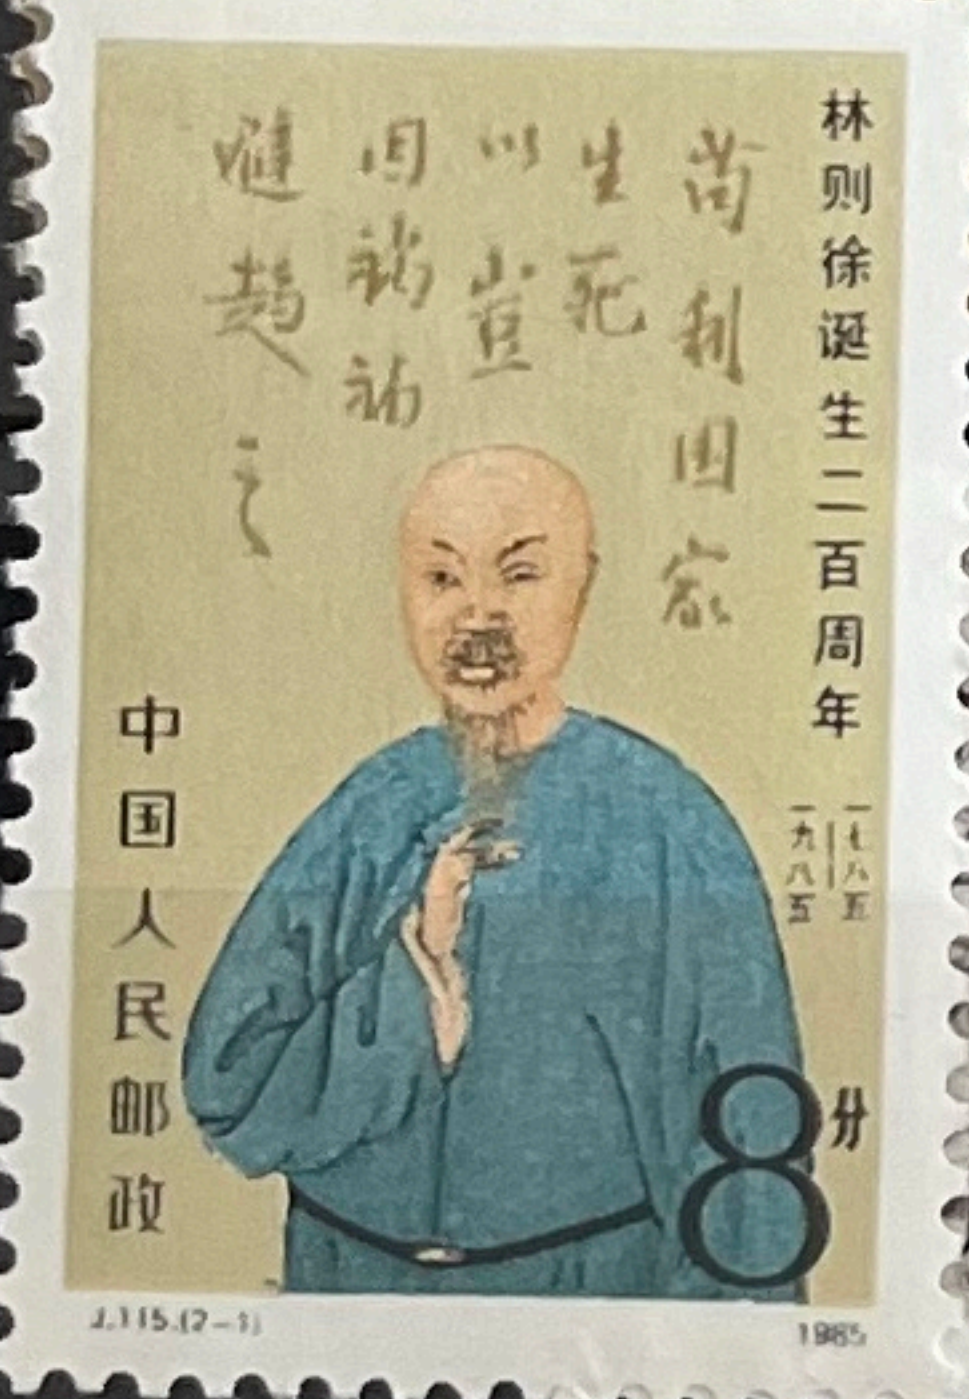 林则徐诞生二百周年
一七八五
一九八五
苟利国家
生死
以岂
因祸福
避趋
之
中国人民邮政
8分
J.115.(2-1)
1985